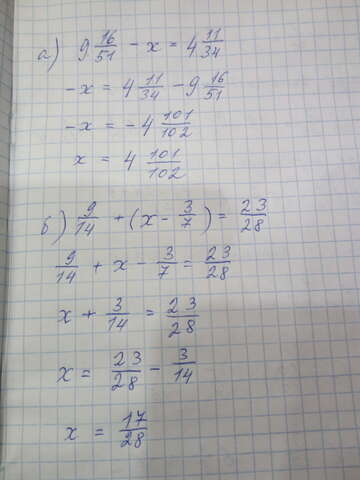 а) 9 16/51 - x = 4 11/34
-x = 4 11/34 - 9 16/51
-x = -4 101/102
x = 4 101/102
б) 9/14 + (x - 3/7) = 23/28
9/14 + x - 3/7 = 23/28
x + 3/14 = 23/28
x = 23/28 - 3/14
x = 17/28